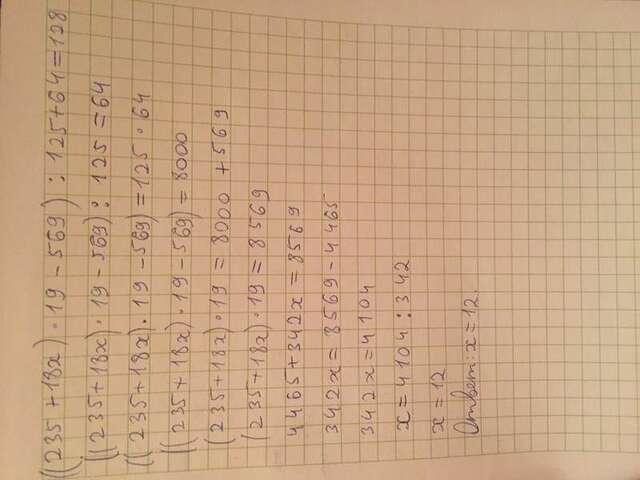 ((235+18x)·19-569):125+64=128
((235+18x)·19-569):125=64
((235+18x)·19-569)=125·64
((235+18x)·19-569)=8000
(235+18x)·19=8000+569
(235+18x)·19=8569
4465+342x=8569
342x=8569-4465
342x=4104
x=4104:342
x=12
Ответ: x=12.